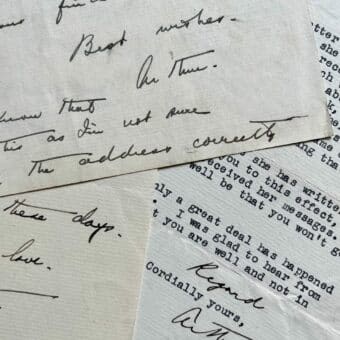 Best wishes.
Arthur.
know that
this as I'm not sure
the address correctly
these days.
love.
etter
she
reco
ch
abo
k,
she has written
you to this effect,
eceived her messages.
well be that you won't g
nly a great deal has happened
I was glad to hear from
t you are well and not in
Regard
Cordially yours,